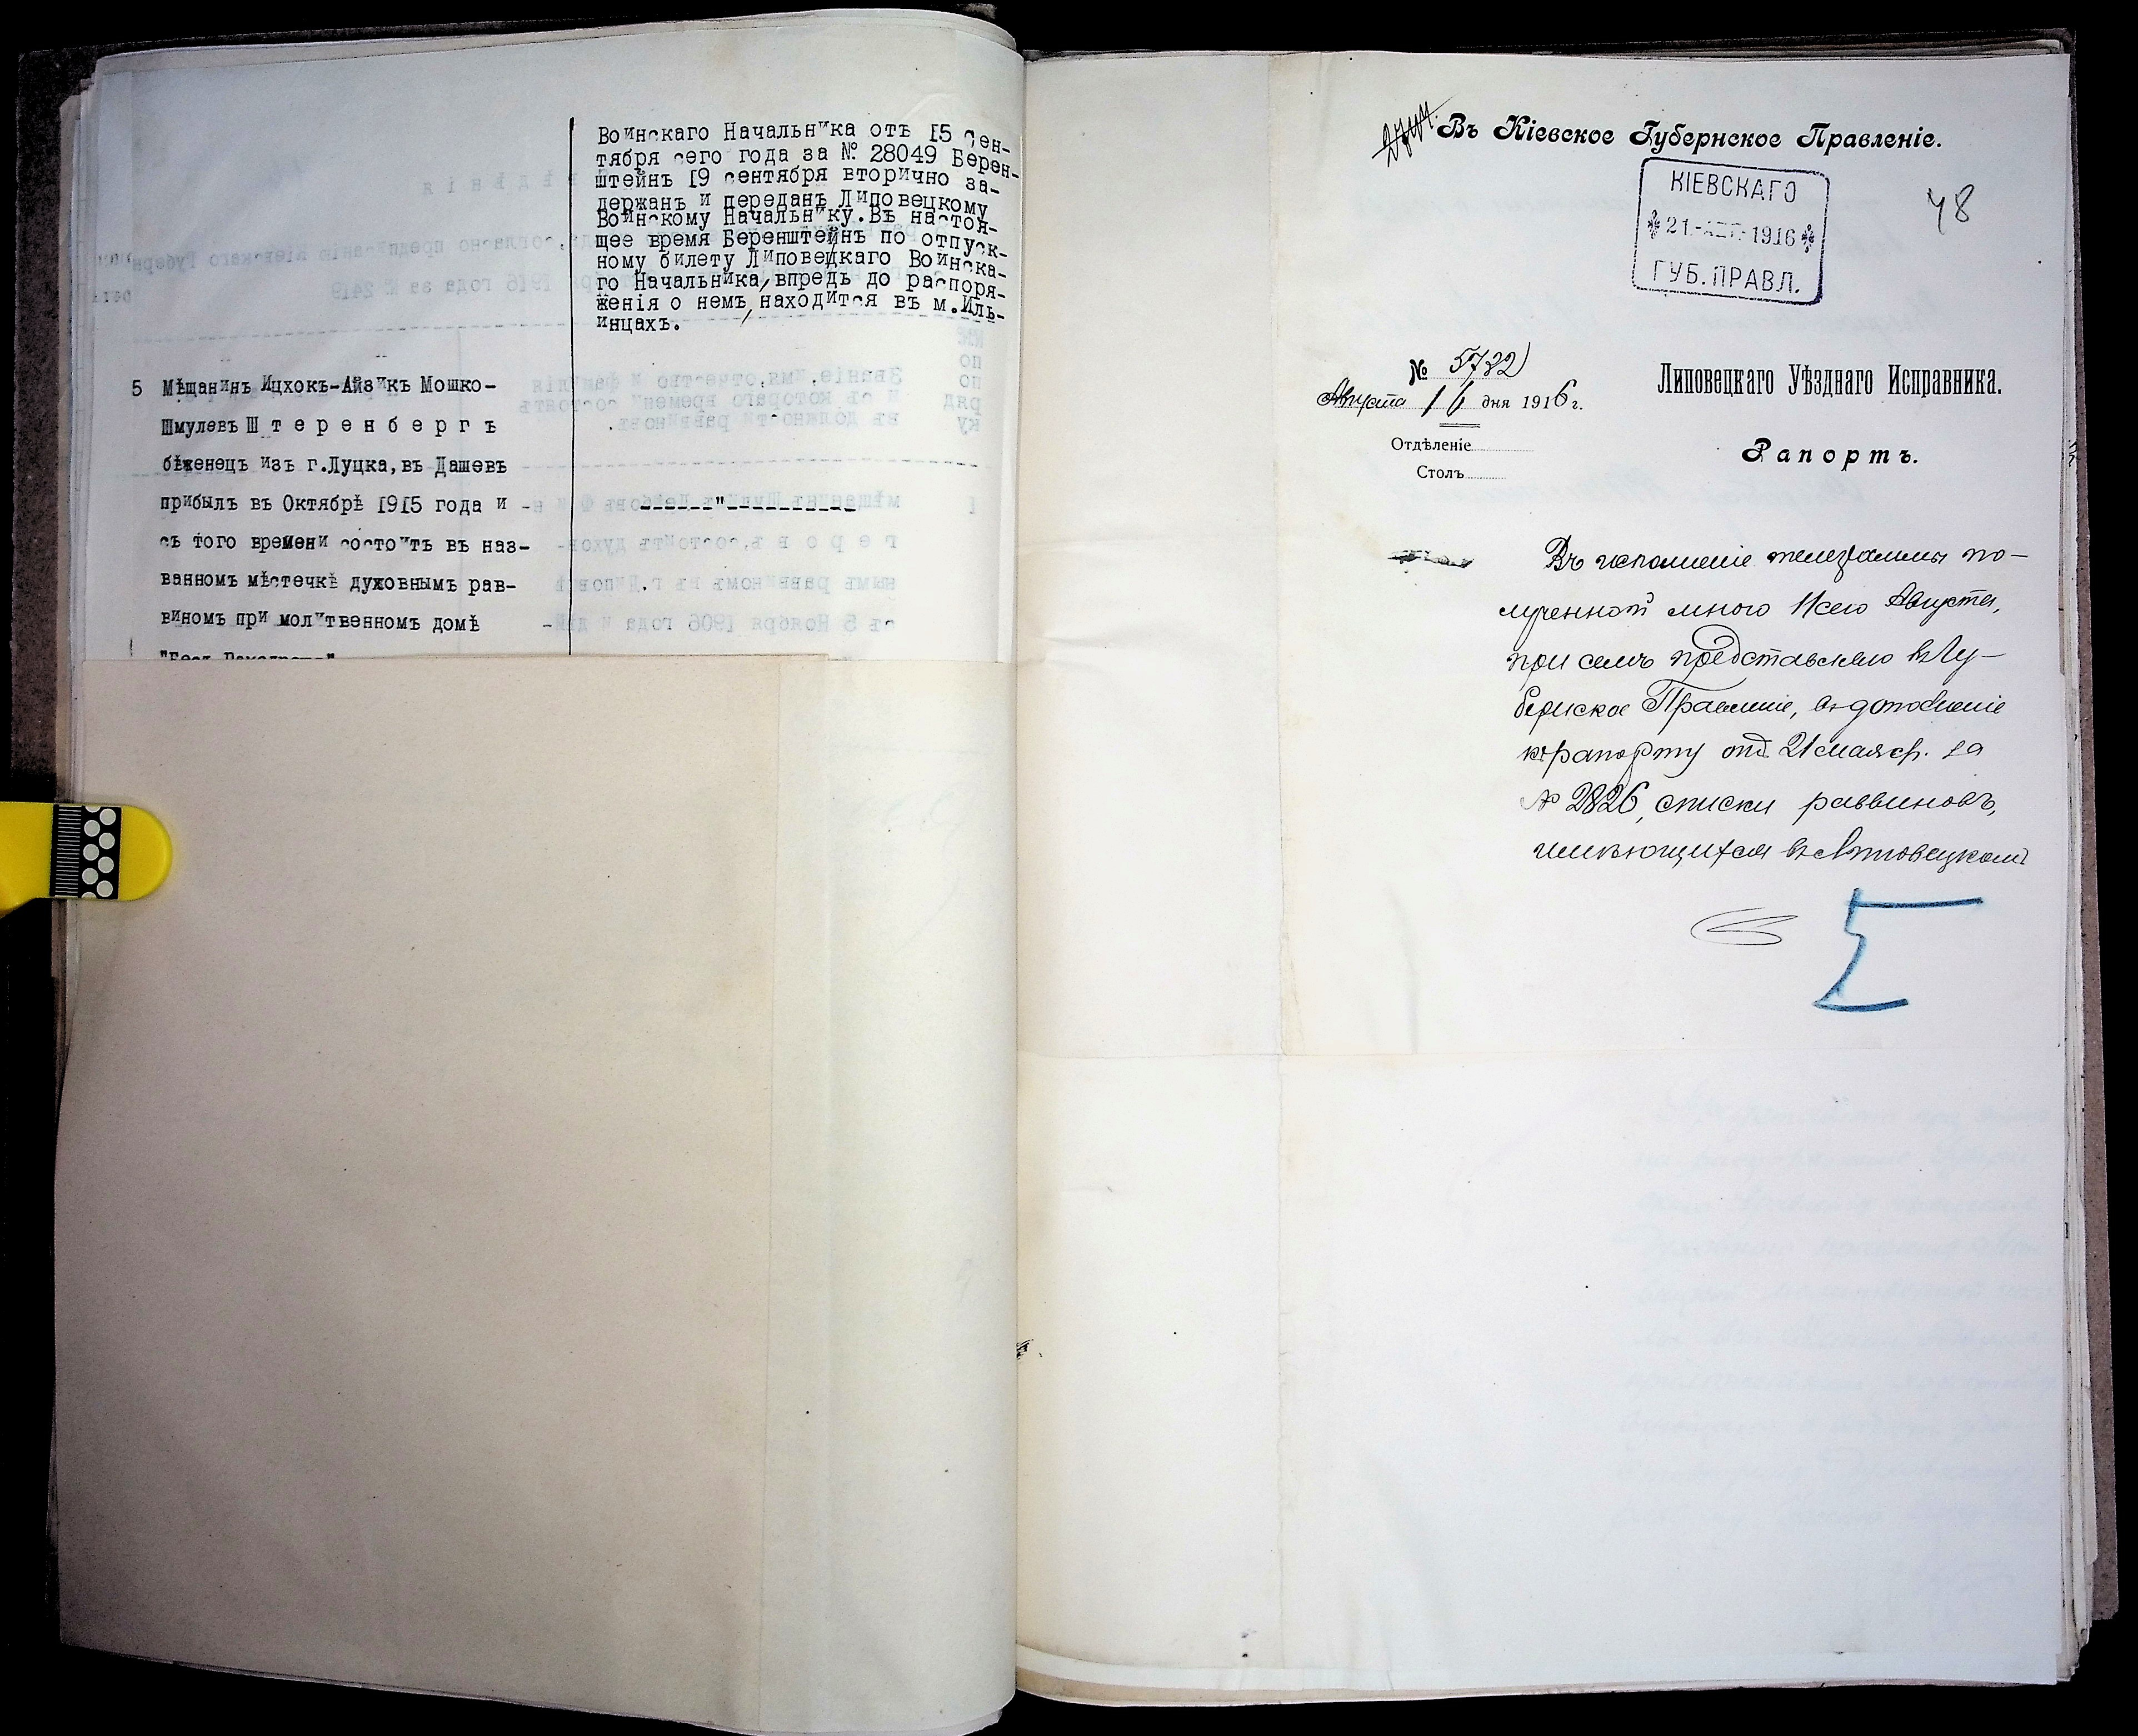 Воинскаго Начальника отъ I5 Сен-
тября сего года за № 28049 Берен-
штейнъ I9 сентября вторично за-
держанъ и переданъ Липовецкому
Воинскому Начальнику. Въ настоя-
щее время Беренштейнъ по отпуск-
ному билету Липовецкаго Воинска-
го Начальника, впредь до распоря-
женія о немъ, находится въ м.Иль-
инцахъ.
5 Мѣщанинъ Ицхокъ-Айзикъ Мошко-
Шмулевъ Ш т е р е н б е р г ъ
бѣженецъ изъ г.Луцка, въ Дашевъ
прибылъ въ Октябрѣ I9I5 года и
съ того времени состоитъ въ наз-
ванномъ мѣстечкѣ духовнымъ рав-
виномъ при молитвенномъ домѣ
------"-----------
Въ Кіевское Губернское Правленіе.
48
КІЕВСКАГО
21.-АВГ.-1916
ГУБ. ПРАВЛ.
№ 5732
Августа 16 дня 1916 г.
Отдѣленіе
Столъ
Липовецкаго Уѣзднаго Исправника.
Рапортъ.
Въ исполненіе телеграммы по-
лученной мною 11 сего Августа,
при семъ представляю въ Гу-
бернское Правленіе, въ дополненіе
къ рапорту отъ 21 мая с.г. за
№ 2826, списки раввиновъ,
имѣющихся въ Липовецкомъ
5